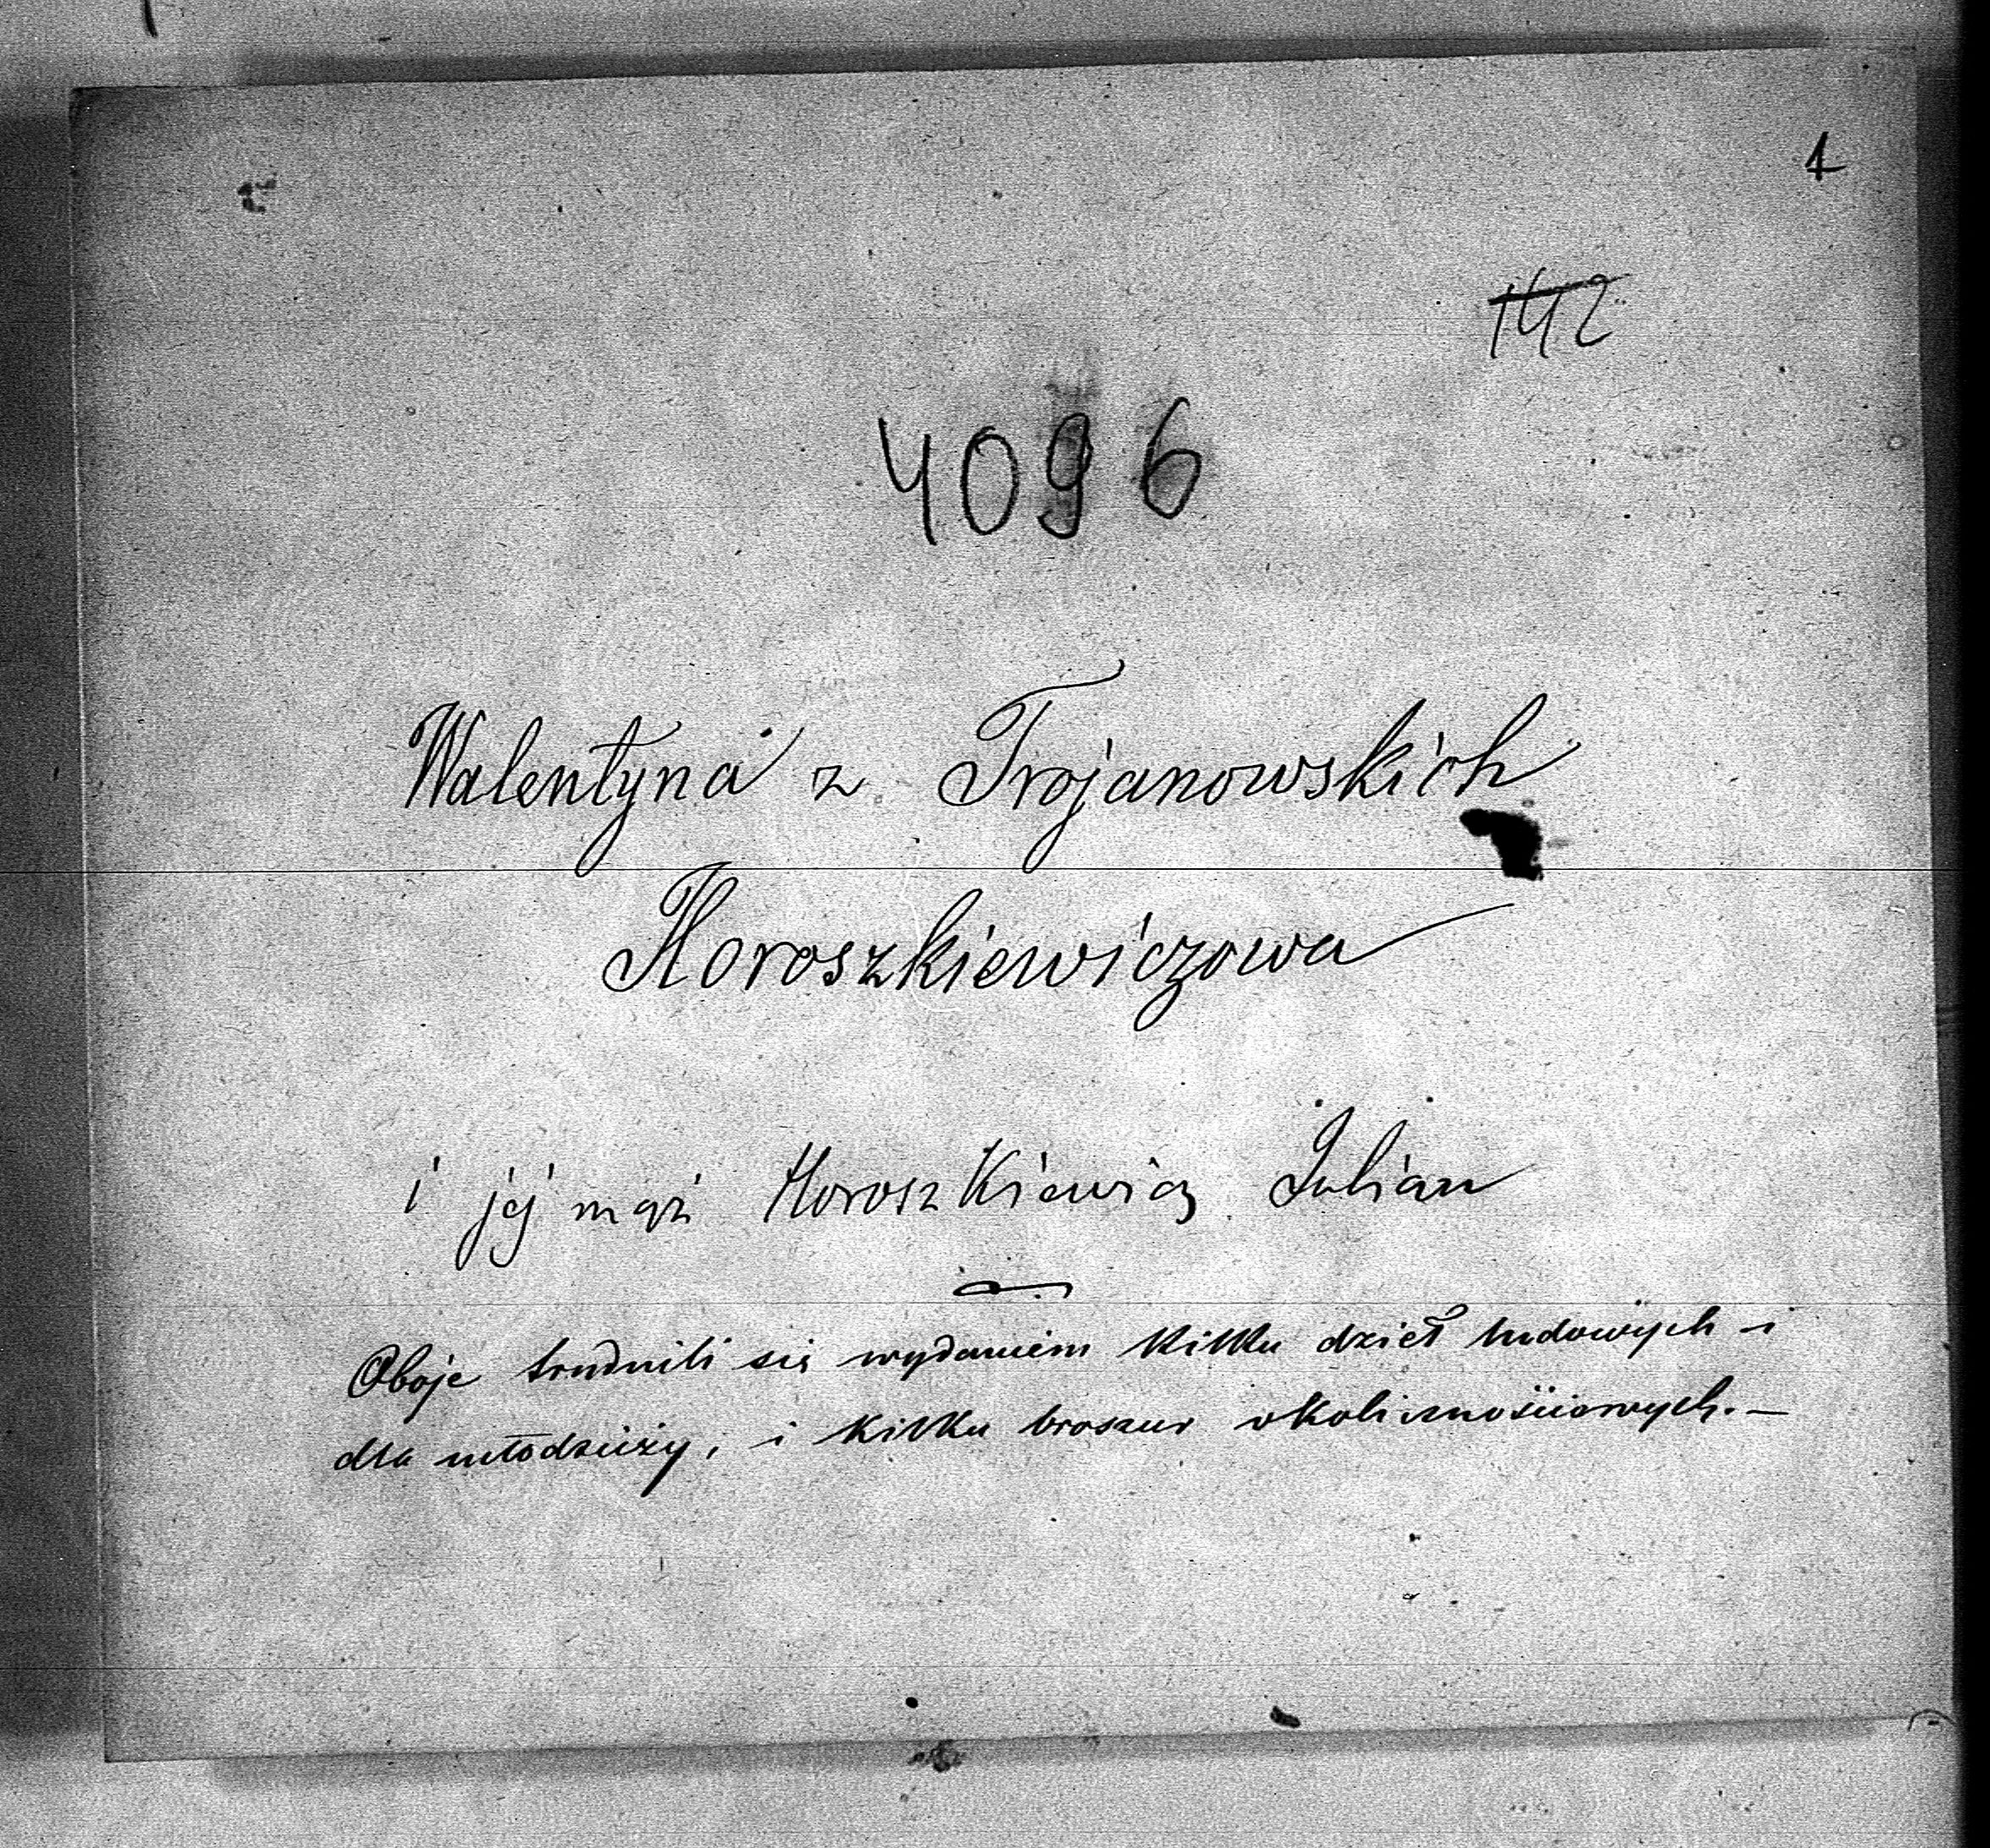 1
142
4096
Walentyna z Trojanowskich
Horoszkiewiczowa
i jej mąż Horoszkiewicz Julian
Oboje trudnili się wydaniem kilku dzieł ludowych i
dla młodzieży, i kilku broszur okolicznościowych.—